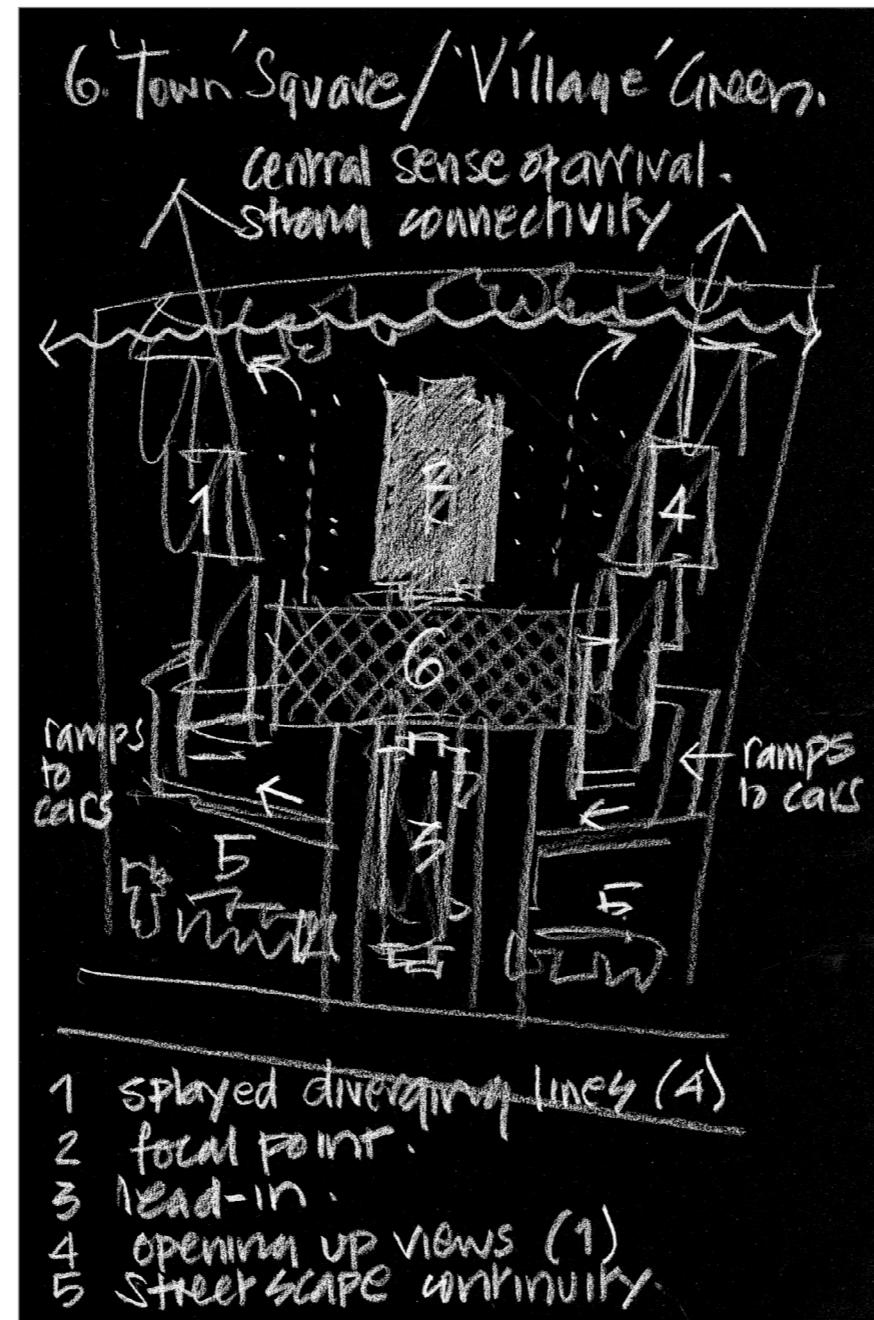 6. 'Town' Square / 'Village' Green.
central sense of arrival.
strong connectivity
1
2
4
6
ramps
to
cars
ramps
to cars
3
5
5
1 splayed diverging lines (4)
2 focal point.
3 lead-in.
4 opening up views (1)
5 Streetscape continuity.